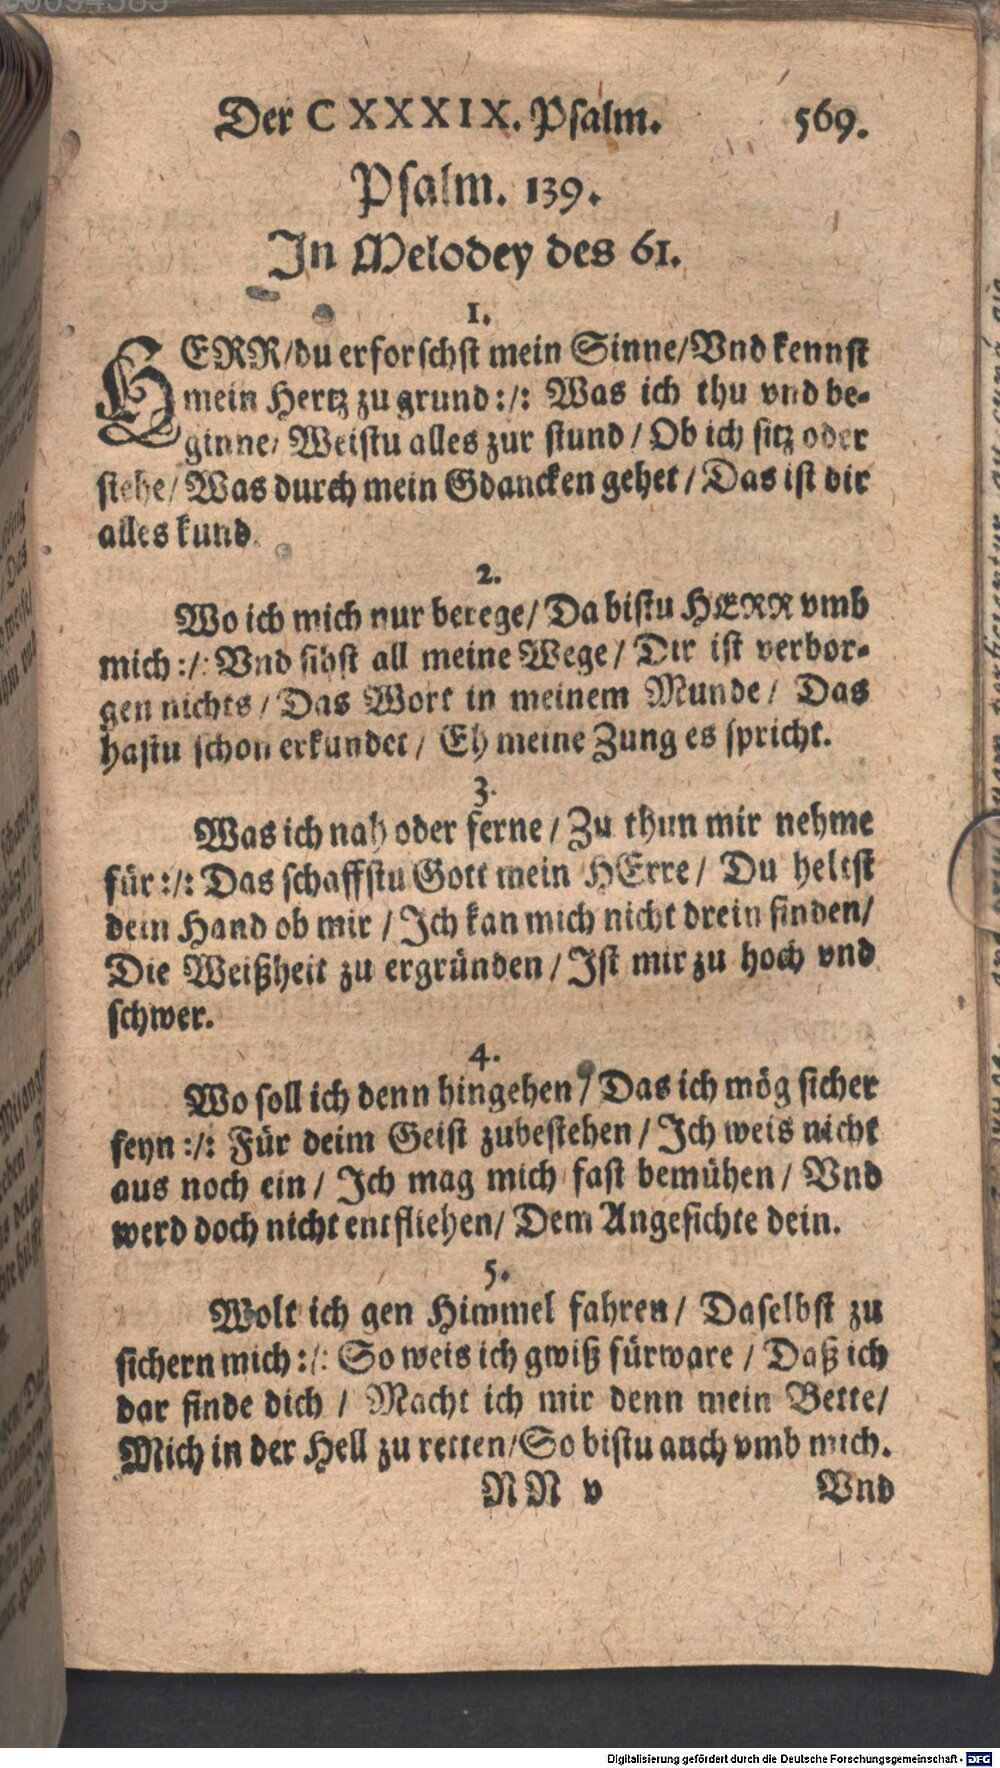 Der CXXXIX. Psalm. 569.
Psalm. 139.
In Melodey des 61.
1.
HERR/du erforschst mein Sinne/Vnd kennst
mein Hertz zu grund:/: Was ich thu vnd be-
ginne/ Weistu alles zur stund / Ob ich sitz oder
stehe/ Was durch mein Gdancken gehet / Das ist dir
alles kund.
2.
Wo ich mich nur berege/ Da bistu HERR vmb
mich:/: Vnd sihst all meine Wege/ Dir ist verbor-
gen nichts / Das Wort in meinem Munde/ Das
hastu schon erkundet / Eh meine Zung es spricht.
3.
Was ich nah oder ferne / Zu thun mir nehme
für:/: Das schaffstu Gott mein HErre/ Du heltst
dein Hand ob mir / Ich kan mich nicht drein finden/
Die Weißheit zu ergründen / Ist mir zu hoch vnd
schwer.
4.
Wo soll ich denn hingehen / Das ich mög sicher
seyn:/: Für deim Geist zubestehen / Ich weis nicht
aus noch ein / Ich mag mich fast bemühen / Vnd
werd doch nicht entfliehen/ Dem Angesichte dein.
5.
Wolt ich gen Himmel fahren / Daselbst zu
sichern mich:/: So weis ich gwiß fürware / Daß ich
dar finde dich / Macht ich mir denn mein Bette/
Mich in der Hell zu retten/So bistu auch vmb mich.
NN v Vnd
Digitalisierung gefördert durch die Deutsche Forschungsgemeinschaft - DFG